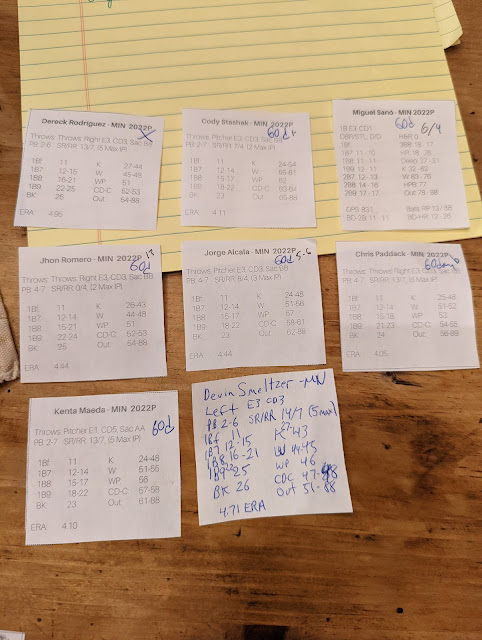 Dereck Rodriguez - MIN 2022P
X
Throws: Throws: Right E3, CD3, Sac BB
PB: 2-6 SR/RR: 13/7, (5 Max IP)
1Bf 11 K 27-44
1B7 12-15 W 45-48
1B8 16-21 WP 51
1B9 22-25 CD-C 52-53
BK 26 Out 54-88
ERA: 4.95
Cody Stashak - MIN 2022P
60d
Throws: Pitcher E3, CD3, Sac BB
PB: 2-7 (2 Max IP)
1Bf 11 K 24-54
1B7 12-14 W
ERA: 4.11
Miguel Sanó - MIN 2022P
60d 6/4
1B E3, CD1
HBR 0
1Bf 3B8 18-17
1B7 11-10 HR 18-26
1B8 11-11 Deep 27-31
1B9 11-11 K 32-62
2B7 12-13 W 63-76
2B8 14-16 HPB 77
2B9 17-17 Out 78-88
Jhon Romero - MIN 2022P
60d
Throws: Throws: Right E3, CD3, Sac BB
PB: 4-7 SR/RR: 0/4, (2 Max IP)
1Bf 11 K 26-43
1B7 12-14 W 44-48
1B8 15-21 WP 51
1B9 22-24 CD-C 52-53
BK 25 Out 54-88
ERA: 4.44
Jorge Alcala - MIN 2022P
60d 5-6
Throws: Pitcher E3, CD3, Sac BB
PB: 4-7 SR/RR: 8/4, (3 Max IP)
1Bf 11 K 24-48
1B7 12-14 W 51-56
1B8 15-17 WP 57
1B9 18-22 CD-C 58-61
BK 23 Out 62-88
ERA: 4.44
Chris Paddack - MIN 2022P
60d
Throws: Throws: Right E3, CD3, Sac
PB: 4-7 SR/RR: 13/7, (5 Max IP)
1Bf 11 K 25-48
1B7 12-14 W 51-52
1B8 15-18 WP 53
1B9 21-23 CD-C 54-55
BK 24 Out 56-88
ERA: 4.05
Kenta Maeda - MIN 2022P
60d
Throws: Pitcher E1, CD5, Sac AA
PB: 2-7 SR/RR: 13/7, (5 Max IP)
1Bf 11 K 24-48
1B7 12-14 W 51-55
1B8 15-17 WP 56
1B9 18-22 CD-C 57-58
BK 23 Out 61-88
ERA: 4.10
Devin Smeltzer - MN
Left E3 CD3
PB 2-6 SR/RR 14/7 (5max)
1Bf 11 K 27-43
1B7 12-15 W 44-45
1B8 16-21 WP 46
1B9 22-25 CDC 47-48
BK 26 Out 51-88
4.71 ERA